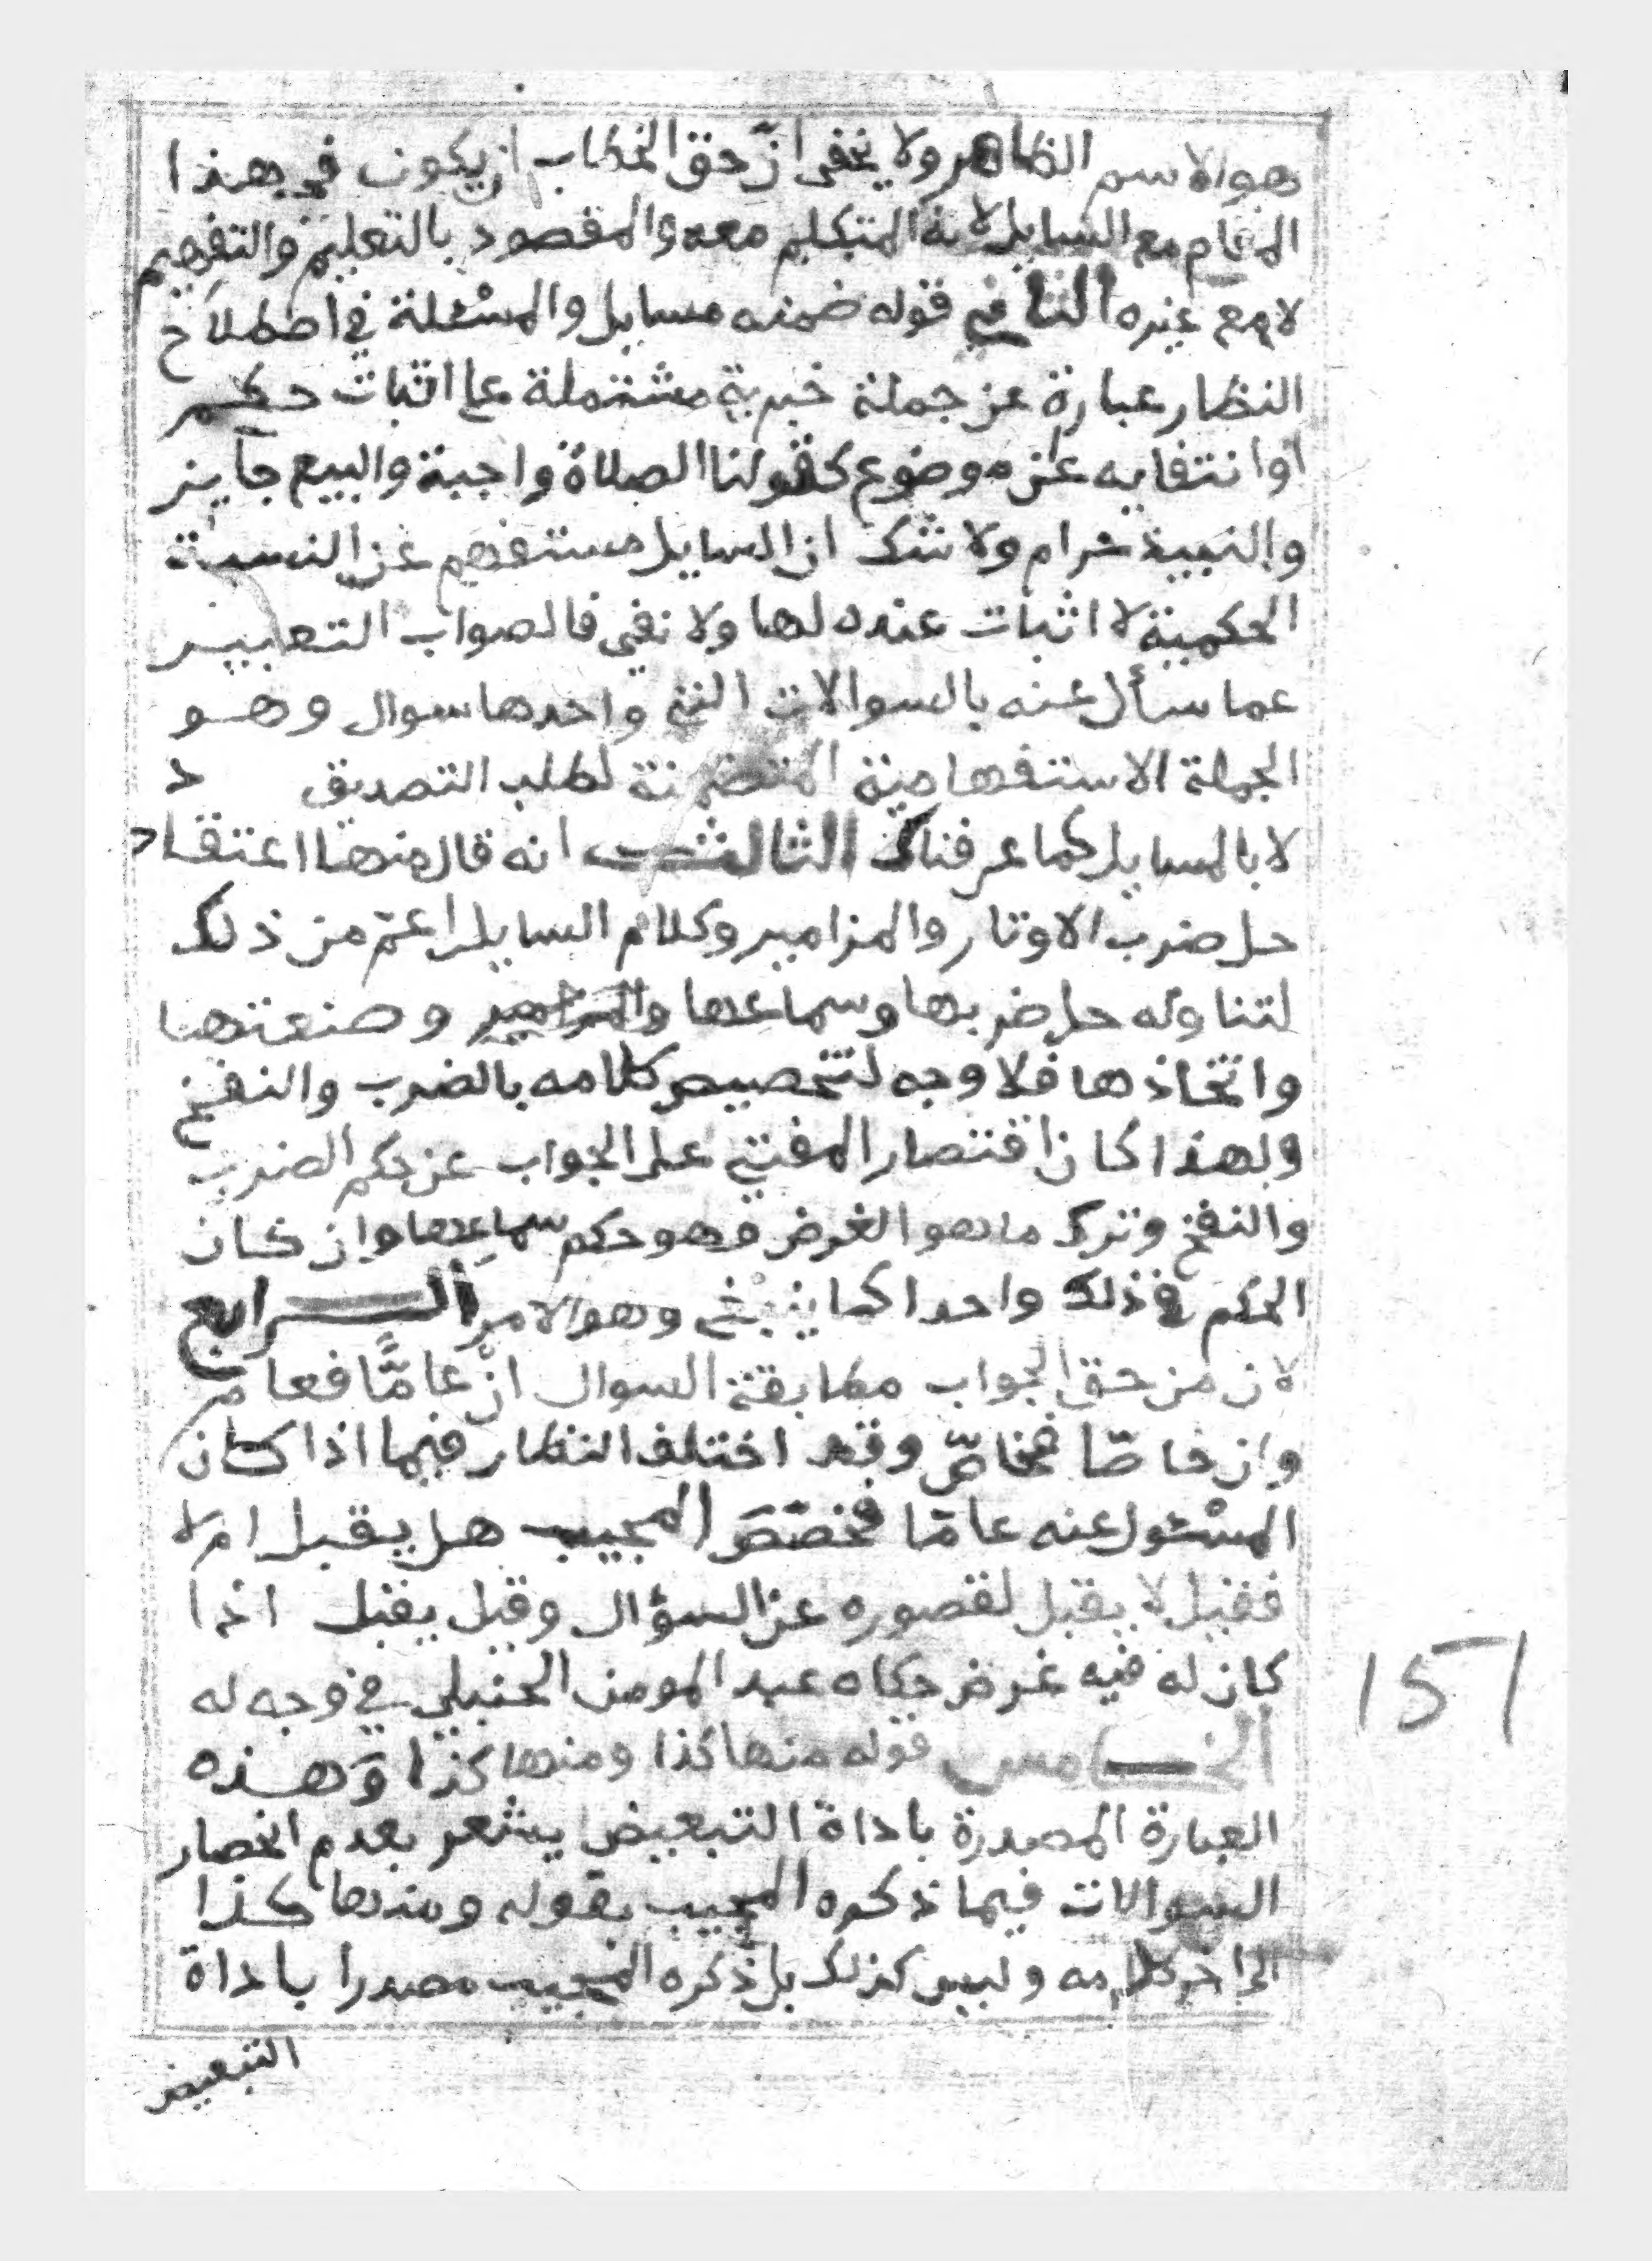 هو الاسم الظاهر ولا يخفى انّ حق الخطاب ان يكون في هذا
المقام مع السايل لانه المتكلم معه والمقصود بالتعليم والتفهيم
لا مع غيره الثاني قوله ضمنه مسايل والمسْئلة في اصطلاح
النظار عبارة عن جملة خبرية مشتملة على اثبات حكم
او انتفايه عن موضوع كقولنا الصلاة واجبة والبيع جايز
والنبيذ حرام ولا شك ان السايل مستفهم عن النسبة
الحكمية لا اثبات عنده لها ولا نفي فالصواب التعبير
عما سأل عنه بالسوالات التي واحدها سوال وهو
الجملة الاستفهامية المتضمنة لطلب التصديق د
لا بالمسايل كما عرفناك الثالث انه قال منها اعتقاد
حل ضرب الاوتار والمزامير وكلام السايل اعمّ من ذلك
لتناوله حل ضربها وسماعها والمزامير وصنعتها
واتخاذها فلا وجه لتخصيص كلامه بالضرب والنفخ
ولهذا كان اقتصار المفتي على الجواب عن حكم الضرب
والنفخ وترك ما هو الغرض وهو حكم سماعها وان كان
الحكم في ذلك واحدا كما ينبغي وهو الامر الرابع
لان من حق الجواب مطابقة السوال انْ عامًّا فعامّ
وان خاصّا فخاصّ وقد اختلف النظار فيما اذا كان
المسْئول عنه عامّا فخصّصَ المجيب هل يقبل ام لا
فقيل لا يقبل لقصوره عن السؤال وقيل يقبل اذا
كان له فيه غرض حكاه عبد المومن الحنبلي في وجه له
الخامس قوله منها كذا ومنها كذا وَهذه
العبارة المصدرة باداة التبعيض يشعر بعدم انحصار
السوالات فيما ذكره المجيب بقوله ومنها كذا
الى اخر كلامه وليس كذلك بل ذكره المجيب مصدرا باداة
التبعيض
151